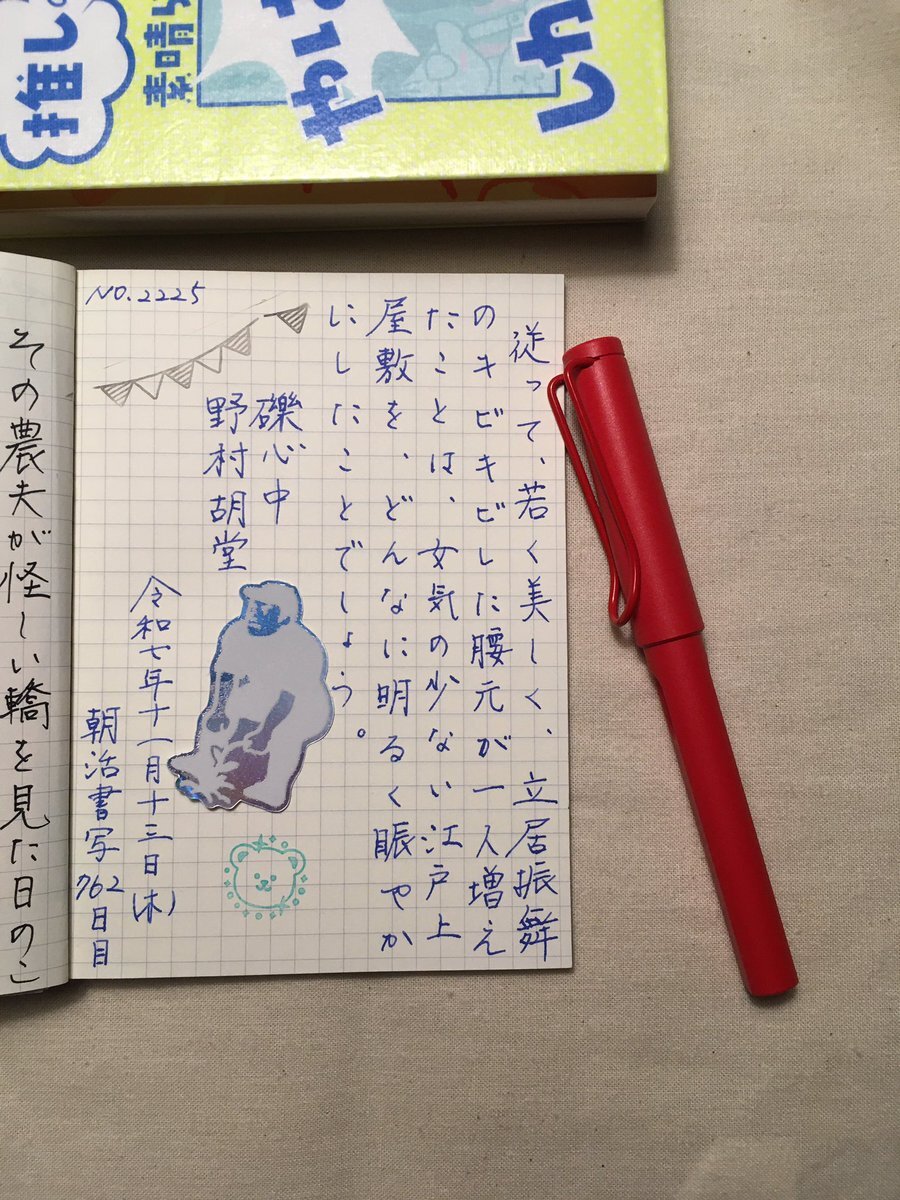 推し。
素晴ら
NO.2225
従って、若く美しく、立居振舞
のキビキビした腰元が一人増え
たことは、女気の少ない江戸上
屋敷を、どんなに明るく賑やか
にしたことでしょう。
礫心中
野村胡堂
令和七年十一月十三日(木)
朝活書写762日目
その農夫が怪しい轎を見た日の